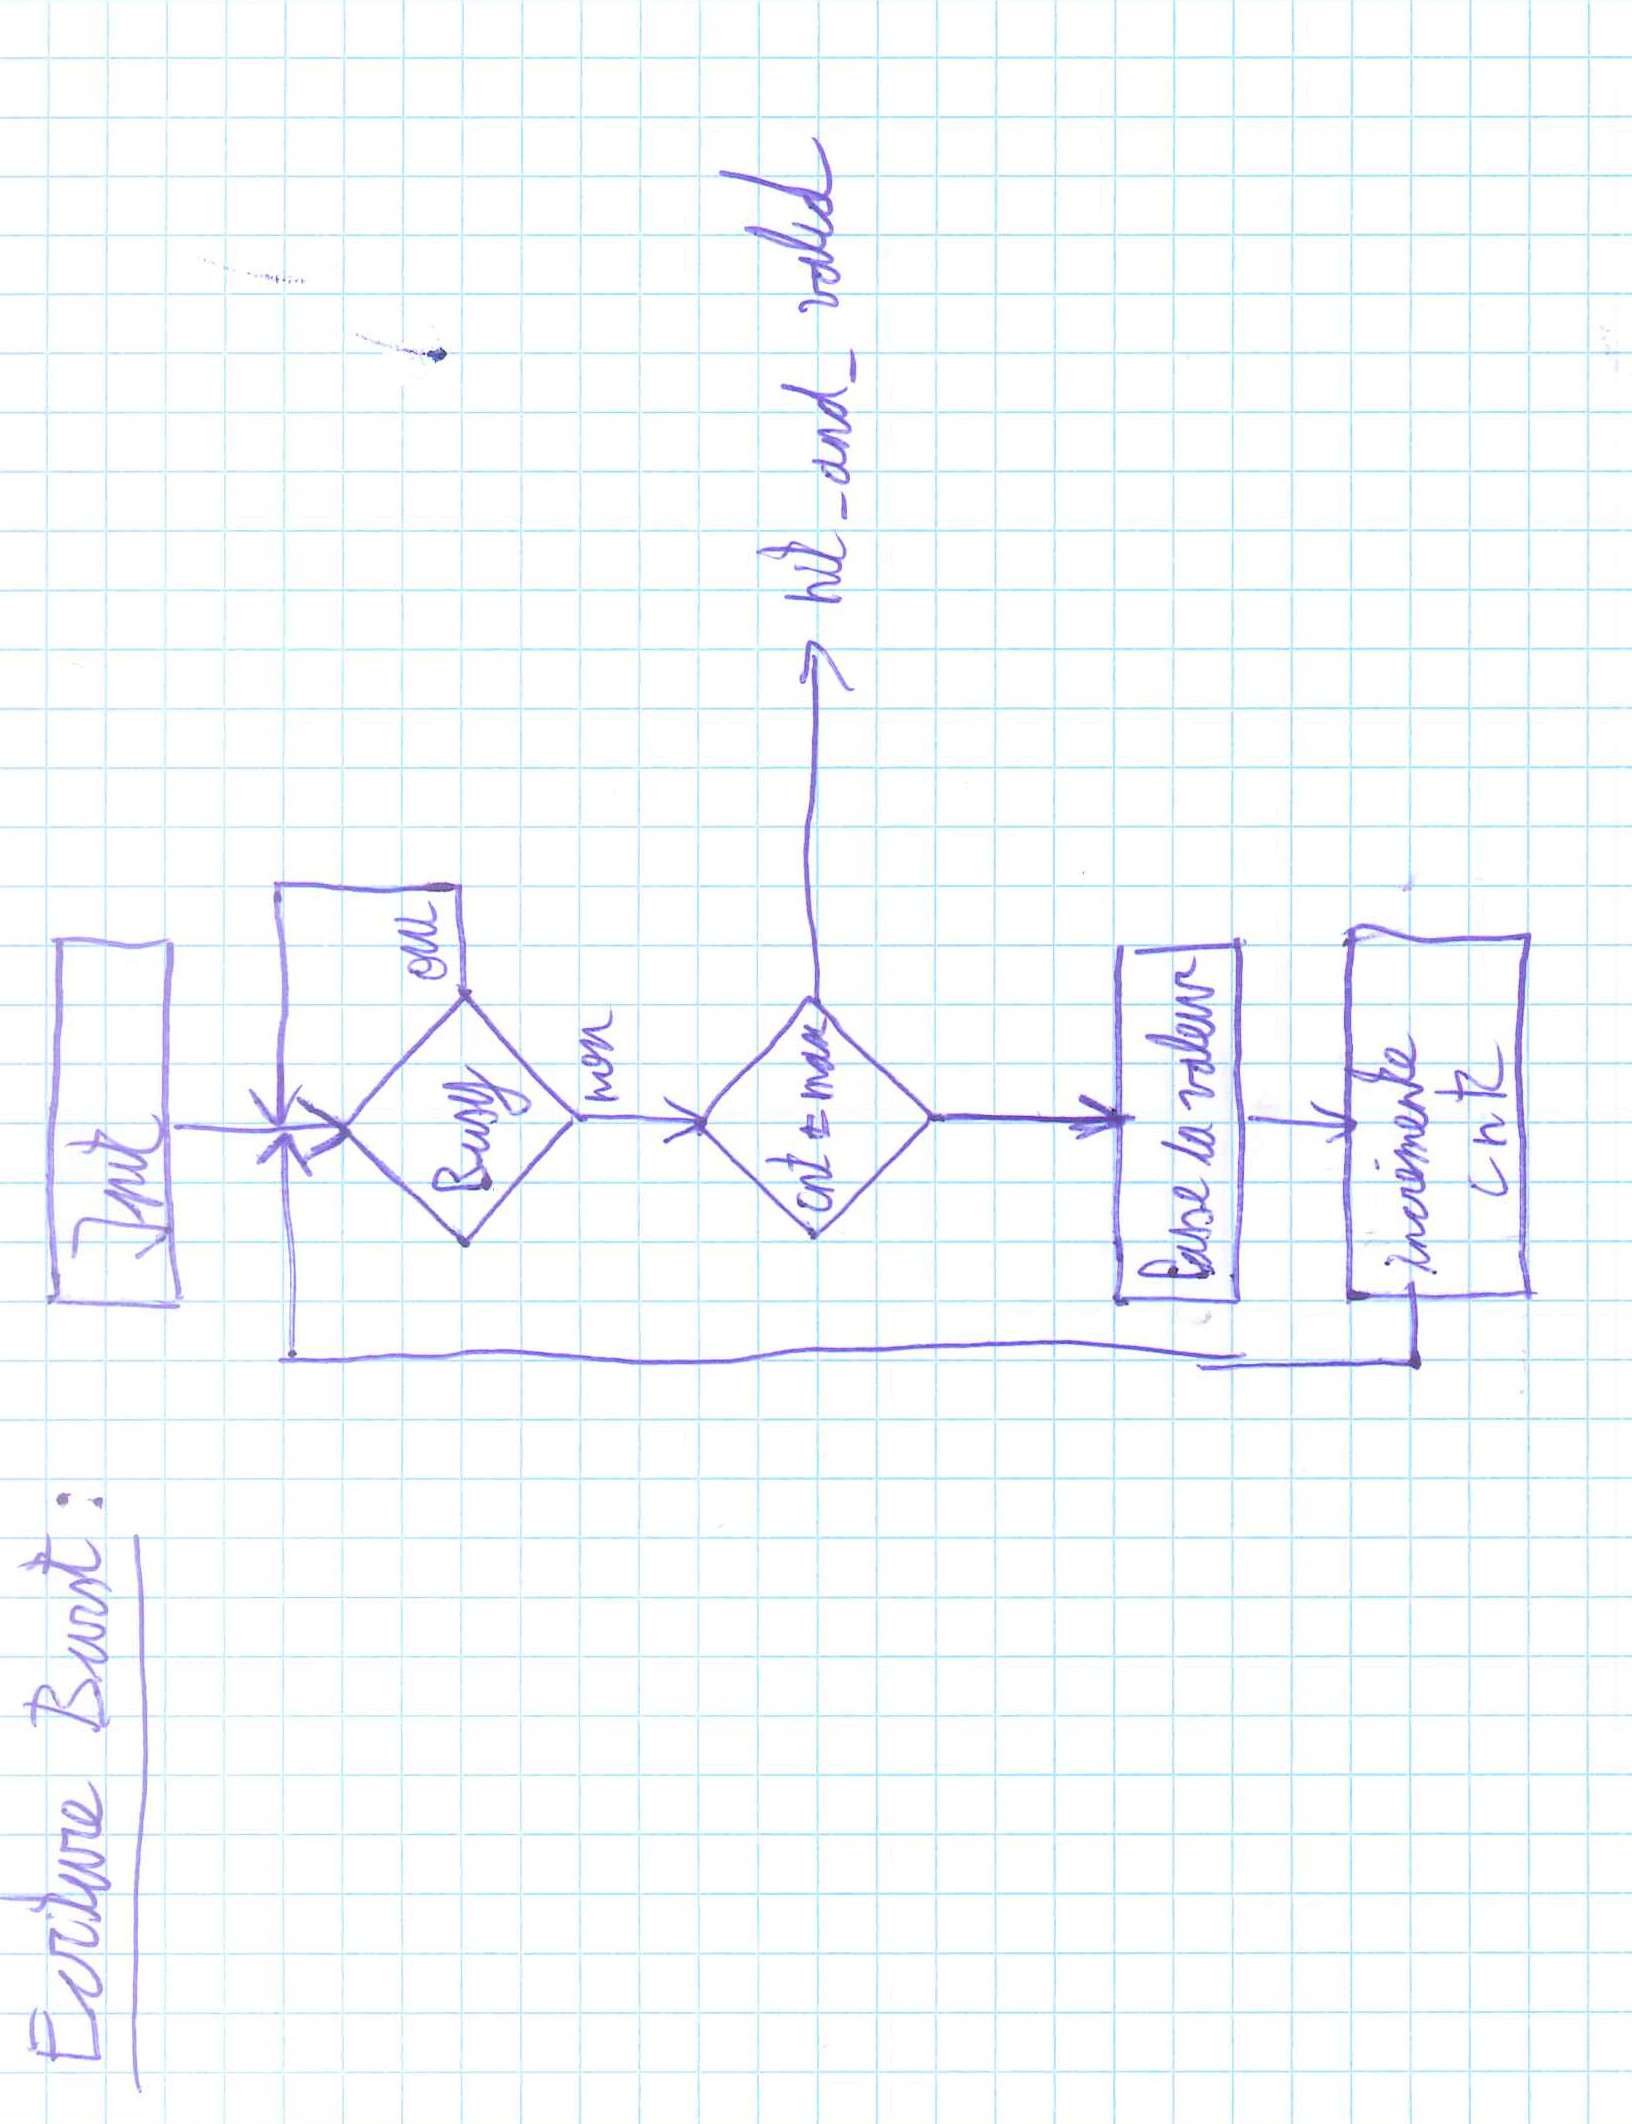 Ecriture Burst :
Inpt
Busy
oui
non
cnt = max
hit_and_valid
Passe la valeur
incrémente
cnt